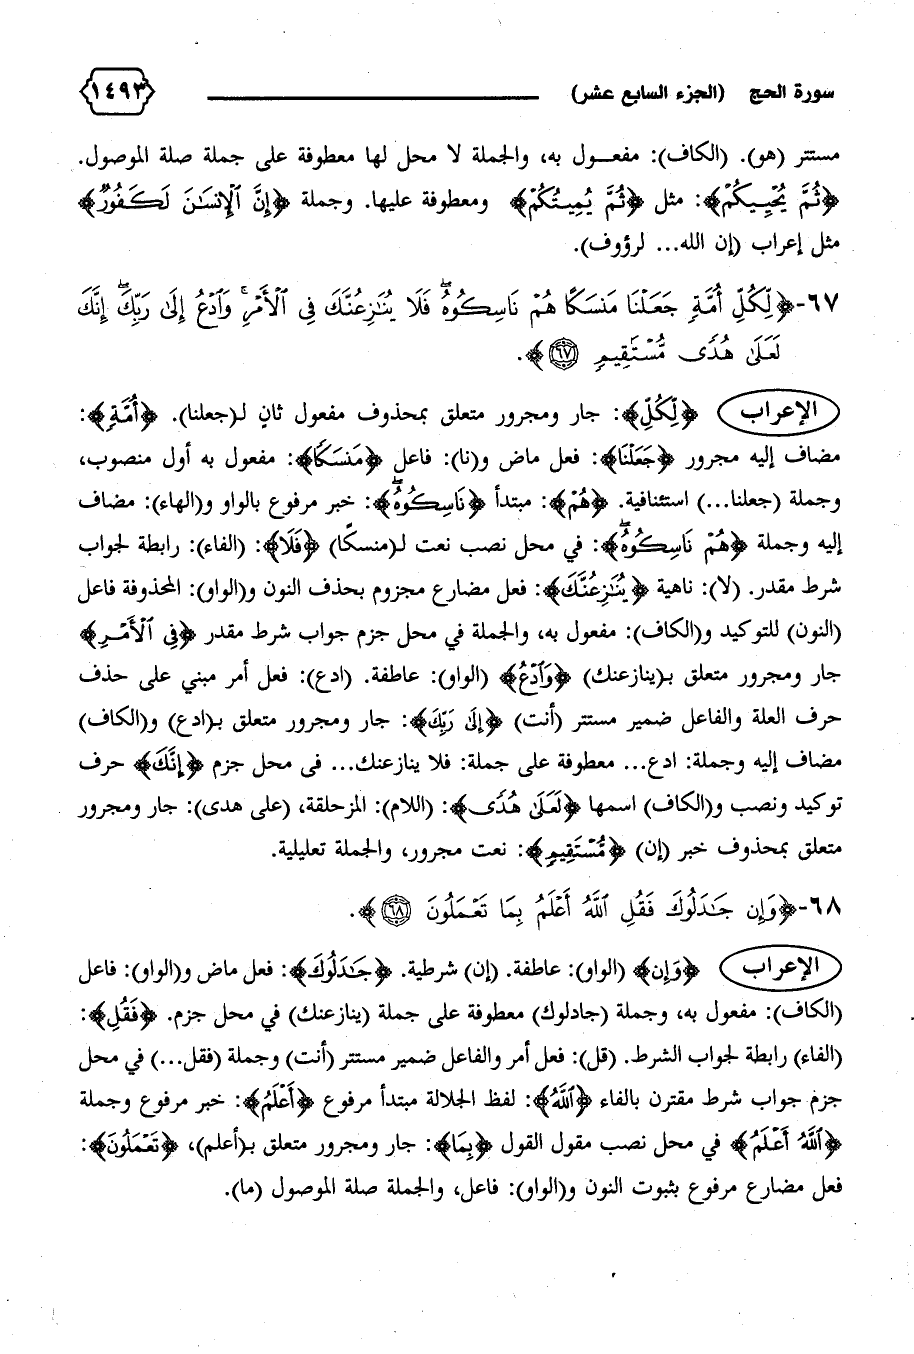 سورة الحج (الجزء السابع عشر) ١٤٩٣
مستتر (هو). (الكاف): مفعـول به، والجملة لا محل لها معطوفة على جملة صلة الموصول.
﴿ثُمَّ يُحْيِيكُمْ﴾: مثل ﴿ثُمَّ يُمِيتُكُمْ﴾ ومعطوفة عليها. وجملة ﴿إِنَّ ٱلْإِنسَٰنَ لَكَفُورٌ﴾
مثل إعراب (إن الله... لرؤوف).
٦٧-﴿لِّكُلِّ أُمَّةٍ جَعَلْنَا مَنسَكًا هُمْ نَاسِكُوهُ ۖ فَلَا يُنَٰزِعُنَّكَ فِى ٱلْأَمْرِ ۚ وَٱدْعُ إِلَىٰ رَبِّكَ ۖ إِنَّكَ
لَعَلَىٰ هُدًى مُّسْتَقِيمٍ ٦٧﴾.
الإعراب ﴿لِّكُلِّ﴾: جار ومجرور متعلق بمحذوف مفعول ثانٍ لـ(جعلنا). ﴿أُمَّةٍ﴾:
مضاف إليه مجرور ﴿جَعَلْنَا﴾: فعل ماض و(نا): فاعل ﴿مَنسَكًا﴾: مفعول به أول منصوب،
وجملة (جعلنا...) استئنافية. ﴿هُمْ﴾: مبتدأ ﴿نَاسِكُوهُ ۖ﴾: خبر مرفوع بالواو و(الهاء): مضاف
إليه وجملة ﴿هُمْ نَاسِكُوهُ ۖ﴾: في محل نصب نعت لـ(منسكًا) ﴿فَلَا﴾: (الفاء): رابطة لجواب
شرط مقدر. (لا): ناهية ﴿يُنَٰزِعُنَّكَ﴾: فعل مضارع مجزوم بحذف النون و(الواو): المحذوفة فاعل
(النون) للتوكيد و(الكاف): مفعول به، والجملة في محل جزم جواب شرط مقدر ﴿فِى ٱلْأَمْرِ﴾
جار ومجرور متعلق بـ(ينازعنك) ﴿وَٱدْعُ﴾ (الواو): عاطفة. (ادع): فعل أمر مبني على حذف
حرف العلة والفاعل ضمير مستتر (أنت) ﴿إِلَىٰ رَبِّكَ﴾: جار ومجرور متعلق بـ(ادع) و(الكاف)
مضاف إليه وجملة: ادع... معطوفة على جملة: فلا ينازعنك... فى محل جزم ﴿إِنَّكَ﴾ حرف
توكيد ونصب و(الكاف) اسمها ﴿لَعَلَىٰ هُدًى﴾: (اللام): المزحلقة، (على هدى): جار ومجرور
متعلق بمحذوف خبر (إن) ﴿مُّسْتَقِيمٍ﴾: نعت مجرور، والجملة تعليلية.
٦٨-﴿وَإِن جَٰدَلُوكَ فَقُلِ ٱللَّهُ أَعْلَمُ بِمَا تَعْمَلُونَ ٦٨﴾.
الإعراب ﴿وَإِن﴾ (الواو): عاطفة. (إن) شرطية. ﴿جَٰدَلُوكَ﴾: فعل ماض و(الواو): فاعل
(الكاف): مفعول به، وجملة (جادلوك) معطوفة على جملة (ينازعنك) في محل جزم. ﴿فَقُلِ﴾:
(الفاء) رابطة لجواب الشرط. (قل): فعل أمر والفاعل ضمير مستتر (أنت) وجملة (فقل...) في محل
جزم جواب شرط مقترن بالفاء ﴿ٱللَّهُ﴾: لفظ الجلالة مبتدأ مرفوع ﴿أَعْلَمُ﴾: خبر مرفوع وجملة
﴿ٱللَّهُ أَعْلَمُ﴾ في محل نصب مقول القول ﴿بِمَا﴾: جار ومجرور متعلق بـ(أعلم)، ﴿تَعْمَلُونَ﴾:
فعل مضارع مرفوع بثبوت النون و(الواو): فاعل، والجملة صلة الموصول (ما).